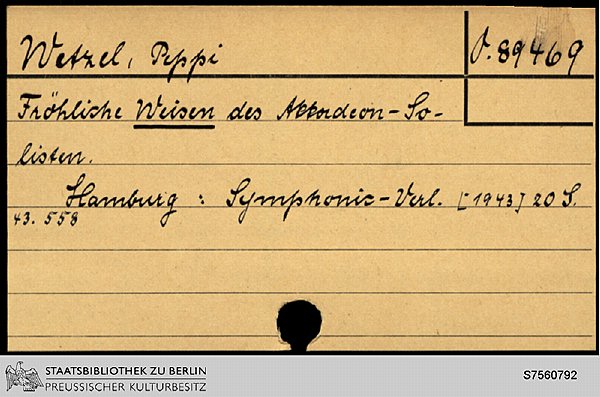 Wetzel, Peppi
O. 89469
Fröhliche Weisen des Akkordeon-So-
listen.
Hamburg : Symphonie-Verl. [1943] 20 S.
43. 558
STAATSBIBLIOTHEK ZU BERLIN
PREUSSISCHER KULTURBESITZ
S7560792